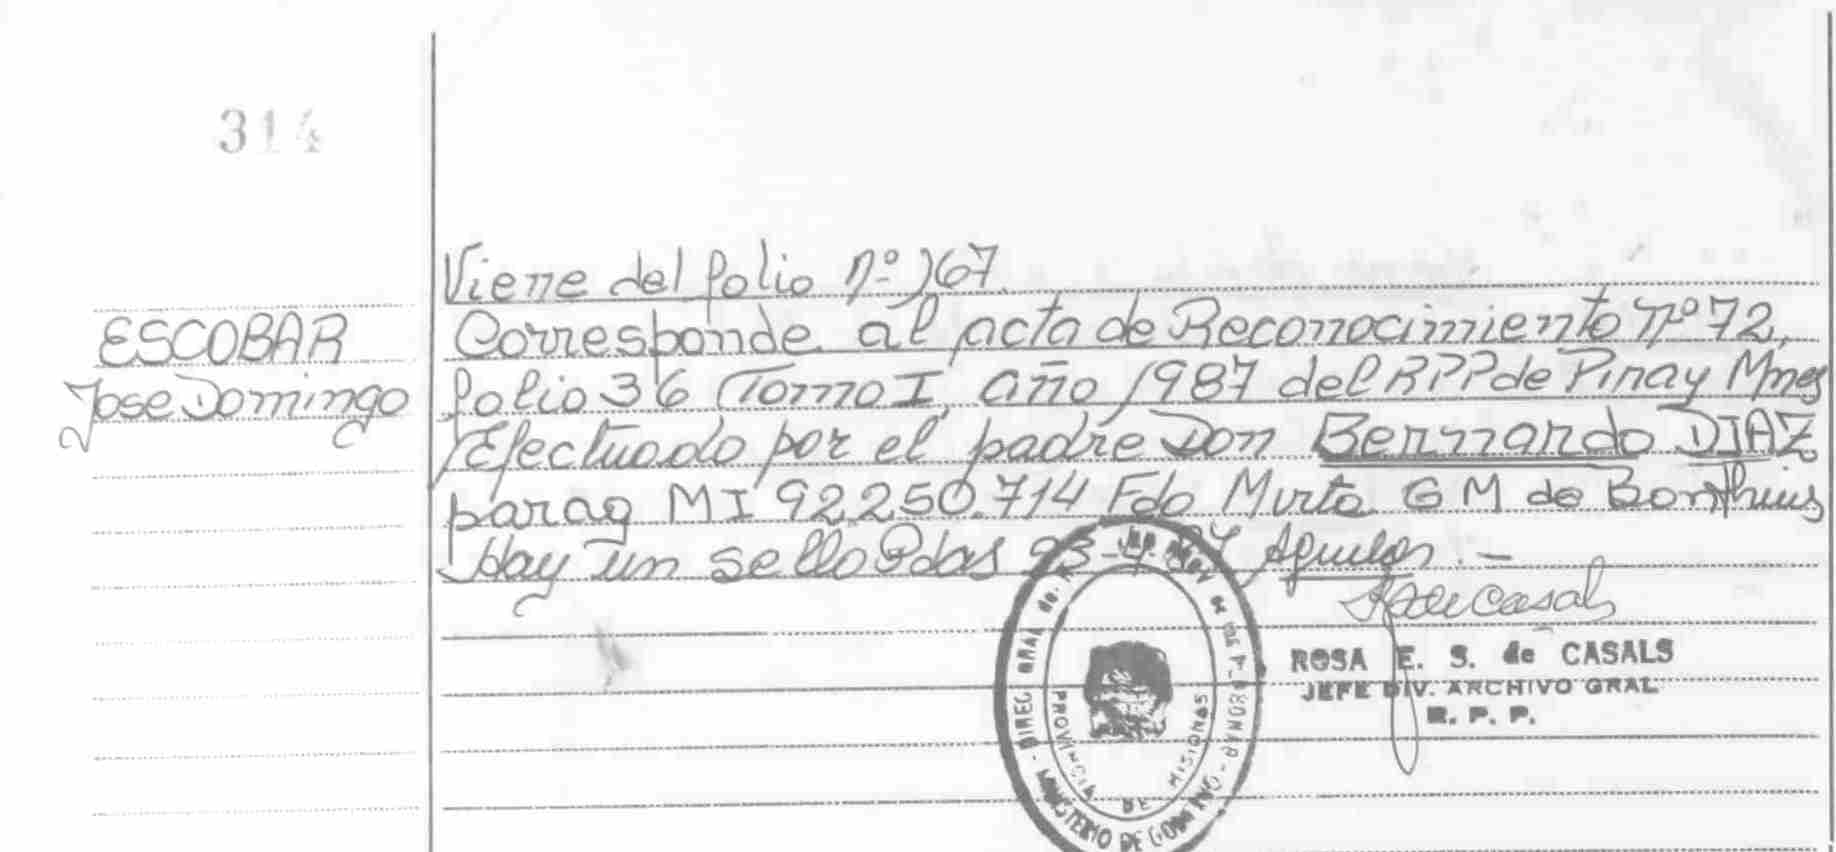 314
Viene del folio nº 167
ESCOBAR
Jose Domingo
Corresponde al acta de Reconocimiento nº 72,
folio 36 Tomo I año 1987 del RPP de Pinay Mnes
Efectuado por el padre Don Bernnardo DIAZ
parag MI 92.250.714 Fdo Mirta G M de Bonthuis
Hay un sello Pdas 23-4-87 Aguilar. -
ROSA E. S. de CASALS
JEFE DIV. ARCHIVO GRAL
R. P. P.
DIREC GRAL del
MINISTERIO DE GOBIERNO
PROVINCIA DE MISIONES